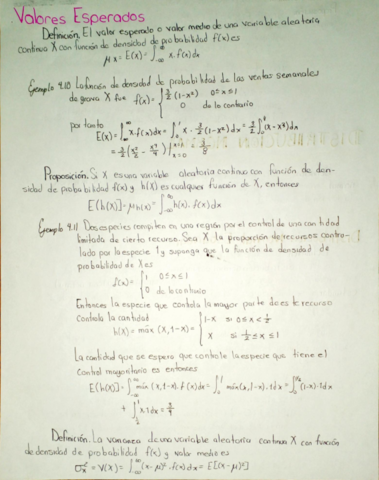 Valores Esperados
Definición. El valor esperado o valor medio de una variable aleatoria
continua X con función de densidad de probabilidad f(x) es
μx = E(X) = ∫_{-∞}^{∞} x. f(x) dx
Ejemplo 4.10 La función de densidad de probabilidad de las ventas semanales
de grava X fue f(x) = { 3/2 (1-x²) 0 ≤ x ≤ 1
0 de lo contrario
por tanto
E(x) = ∫_{-∞}^{∞} x. f(x) dx = ∫_0^1 x. 3/2 (1-x²) dx = 3/2 ∫_0^1 (x-x³) dx
= 3/2 (x²/2 - x⁴/4) |_{x=0}^{x=1} = 3/8
Proposición. Si X es una variable aleatoria continua con función de den-
sidad de probabilidad f(x) y h(X) es cualquier función de X, entonces
E[h(X)] = μh(x) = ∫_{-∞}^{∞} h(x). f(x) dx
Ejemplo 4.11 Dos especies compiten en una región por el control de una cantidad
limitada de cierto recurso. Sea X la proporción de recursos contro-
lado por la especie 1 y suponga que la función de densidad de
probabilidad de X es
f(x) = { 1 0 ≤ x ≤ 1
0 de lo contrario
Entonces la especie que controla la mayor parte de este recurso
Controla la cantidad
h(X) = máx (X, 1-X) = { 1-X si 0 ≤ X < 1/2
X si 1/2 ≤ X ≤ 1
La cantidad que se espera que controle la especie que tiene el
control mayoritario es entonces
E[h(X)] = ∫_{-∞}^{∞} máx (x, 1-x). f(x) dx = ∫_0^1 máx (x, 1-x). 1 dx = ∫_0^{1/2} (1-x). 1 dx
+ ∫_{1/2}^1 x. 1 dx = 3/4
Definición. La varianza de una variable aleatoria continua X con función
de densidad de probabilidad f(x) y valor medio es
σx² = V(X) = ∫_{-∞}^{∞} (x-μ)². f(x) dx = E[(X-μ)²]